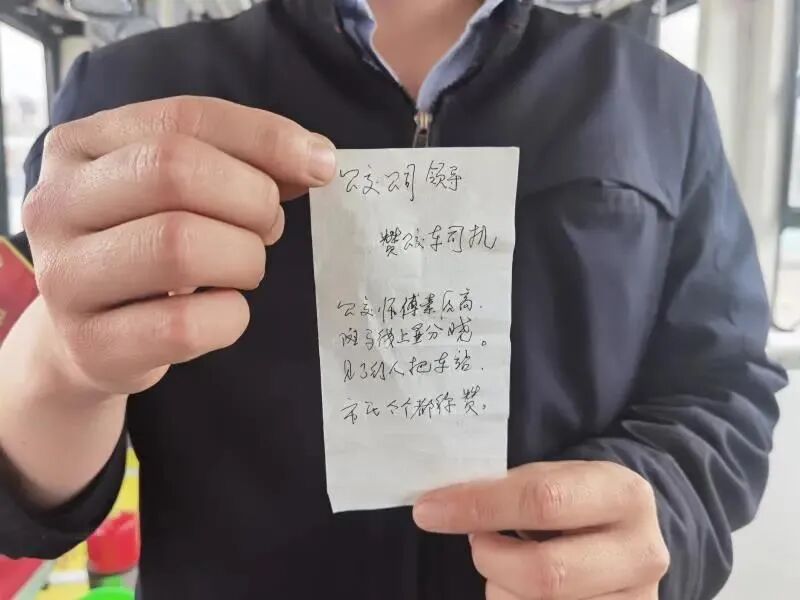 公交公司 领导
赞公交车司机
公交师傅素质高.
斑马线上显分晓。
见了行人把车站.
市民个个都称赞。